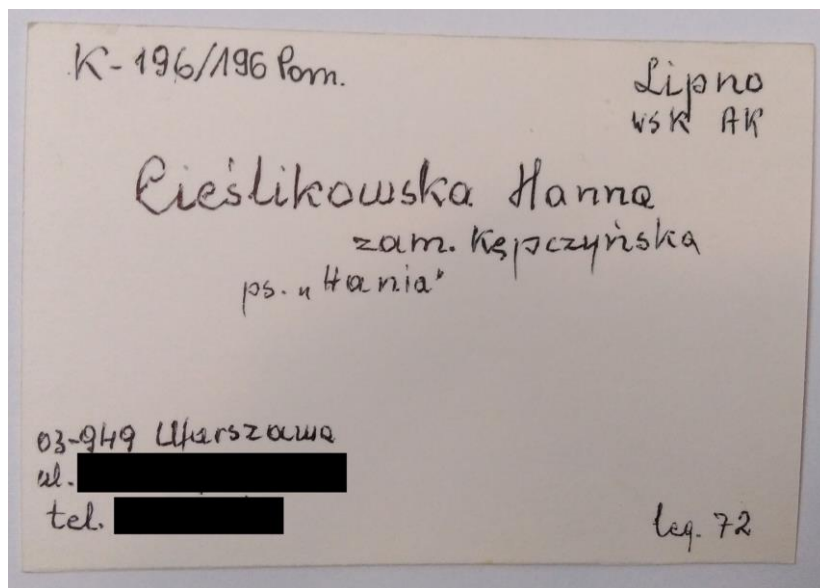 K-196/196 Pom.
Lipno
WSK AK
Cieślikowska Hanna
zam. Kępczyńska
ps. „Hania"
03-949 Warszawa
ul.
tel.
leg. 72